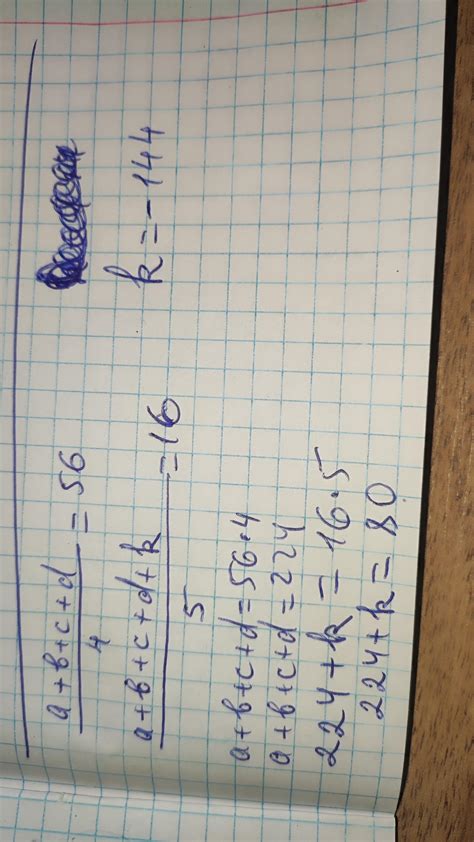 a+b+c+d
4
=56
a+b+c+d+k
5
=16
k=-144
a+b+c+d=56·4
a+b+c+d=224
224+k=16·5
224+k=80